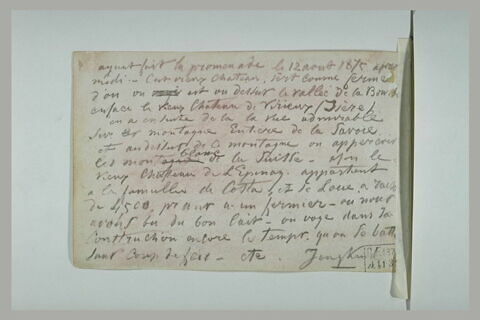 ayant fait la promenade le 12 aout 1875 apres
midi - Cest vieux chateau, sert comme ferme
d'ou on est au dessus la vallée de la
en face le vieux Château de Virieux (Isère)
on a ensuite de la la vue admirable
sur les montagne Entiere de la Savoie
et au dessus de montagne on
les montagne blanc de la Suisse - le
vieux Château de L'Epinay. appartient
a la famille de Cotta, et se Loue, a
de 4,500, pr ant a un fermier - ou nous
avons bu du bon lait - on voye dans la
Construction encore le temps qu on se
sans coup de feu - etc. Jongkind